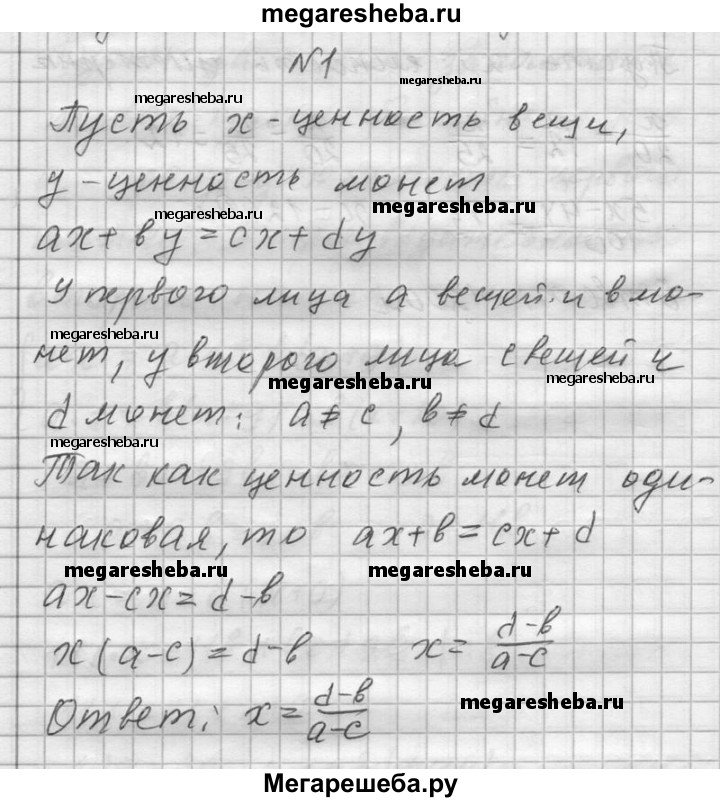 megaresheba.ru
N1
megaresheba.ru
megaresheba.ru
Пусть x - ценность вещи,
y - ценность монет
megaresheba.ru
megaresheba.ru
ax + by = cx + dy
У первого лица a вещей и b мо-
megaresheba.ru
нет, у второго лица c вещей и
megaresheba.ru
megaresheba.ru
d монет: a ≠ c, b ≠ d
megaresheba.ru
Так как ценность монет оди-
наковая, то ax + b = cx + d
megaresheba.ru
megaresheba.ru
ax - cx = d - b
x(a - c) = d - b x = \frac{d-b}{a-c}
megaresheba.ru
Ответ: x = \frac{d-b}{a-c}
Мегарешеба.ру